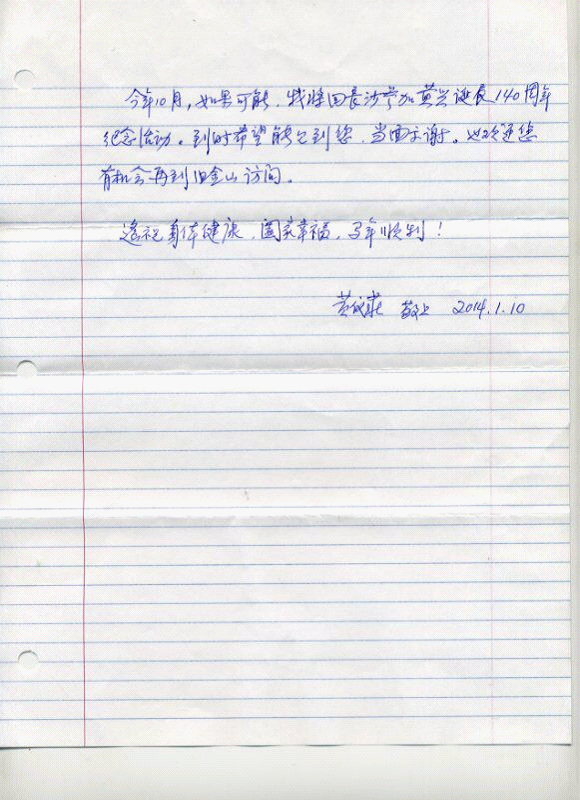 今年10月，如果可能，我将回长沙参加黄兴诞辰140周年
纪念活动。到时希望能见到您，当面示谢。也欢迎您
有机会再到旧金山访问。
遥祝身体健康，阖家幸福，马年顺利！
敬上 2014.1.10